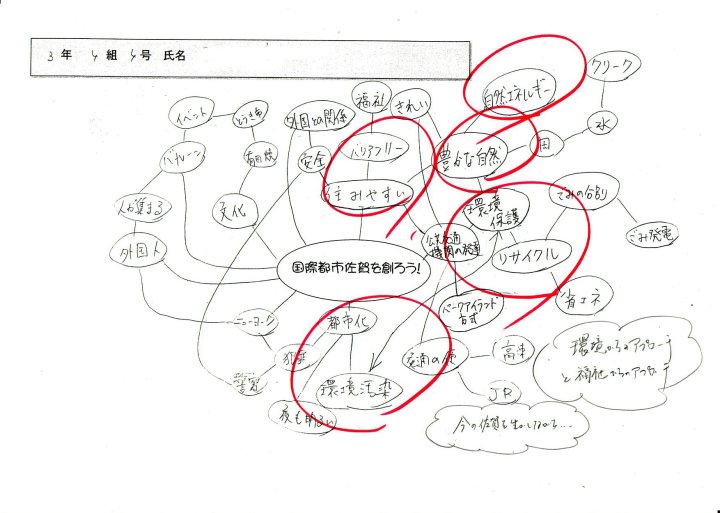 3 年 4 組 4 号 氏名
クリーク
自然エネルギー
水
田
福祉
きれい
イベント
とうき市
外国との関係
バリアフリー
豊かな自然
バルーン
有田焼
安全
住みやすい
環境
保護
ごみの分別
人が集まる
文化
公共交通
機関の発達
ごみ発電
外国人
国際都市佐賀を創ろう!
リサイクル
省エネ
パークアイランド
方式
ニューヨーク
都市化
犯罪
交通の便
高速
環境からのアプローチ
と福祉からのアプローチ
警察
環境汚染
JR
夜も明るい
今の佐賀を生かしながら…